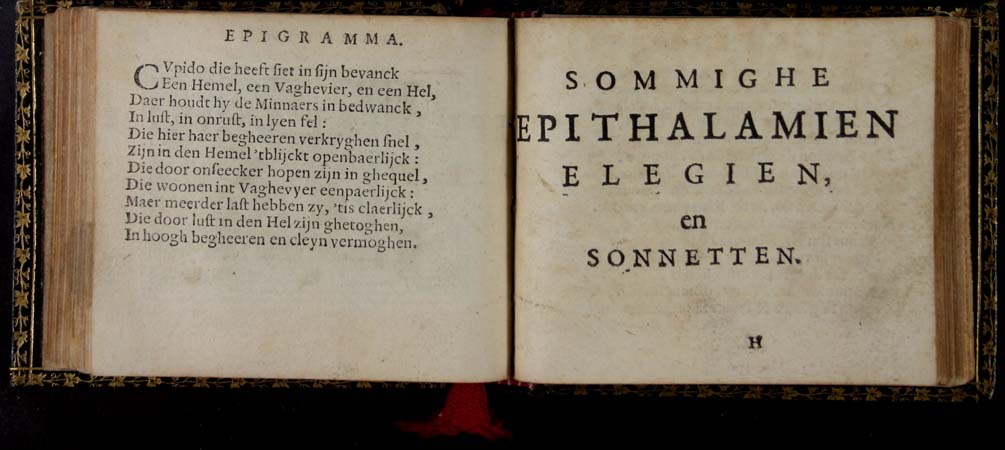 EPIGRAMMA.
CVpido die heeft siet in sijn bevanck
Een Hemel, een Vaghevier, en een Hel,
Daer houdt hy de Minnaers in bedwanck,
In lust, in onrust, in lyen fel:
Die hier haer begheeren verkryghen snel,
Zijn in den Hemel 'tblijckt openbaerlijck:
Die door onseecker hopen zijn in ghequel,
Die woonen int Vaghevyer eenpaerlijck:
Maer meerder last hebben zy, 'tis claerlijck,
Die door lust in den Hel zijn ghetoghen,
In hoogh begheeren en cleyn vermoghen.
SOMMIGHE
EPITHALAMIEN
ELEGIEN,
en
SONNETTEN.
H